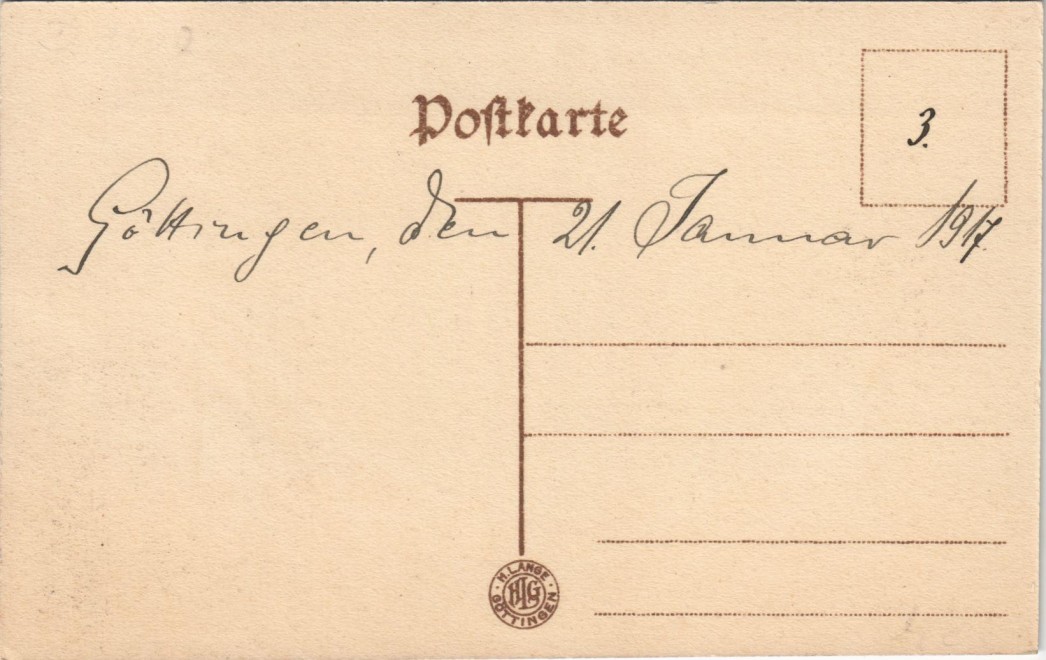 Postkarte
3.
Göttingen, den 21. Januar 1917.
H. LANGE
HLG
GÖTTINGEN